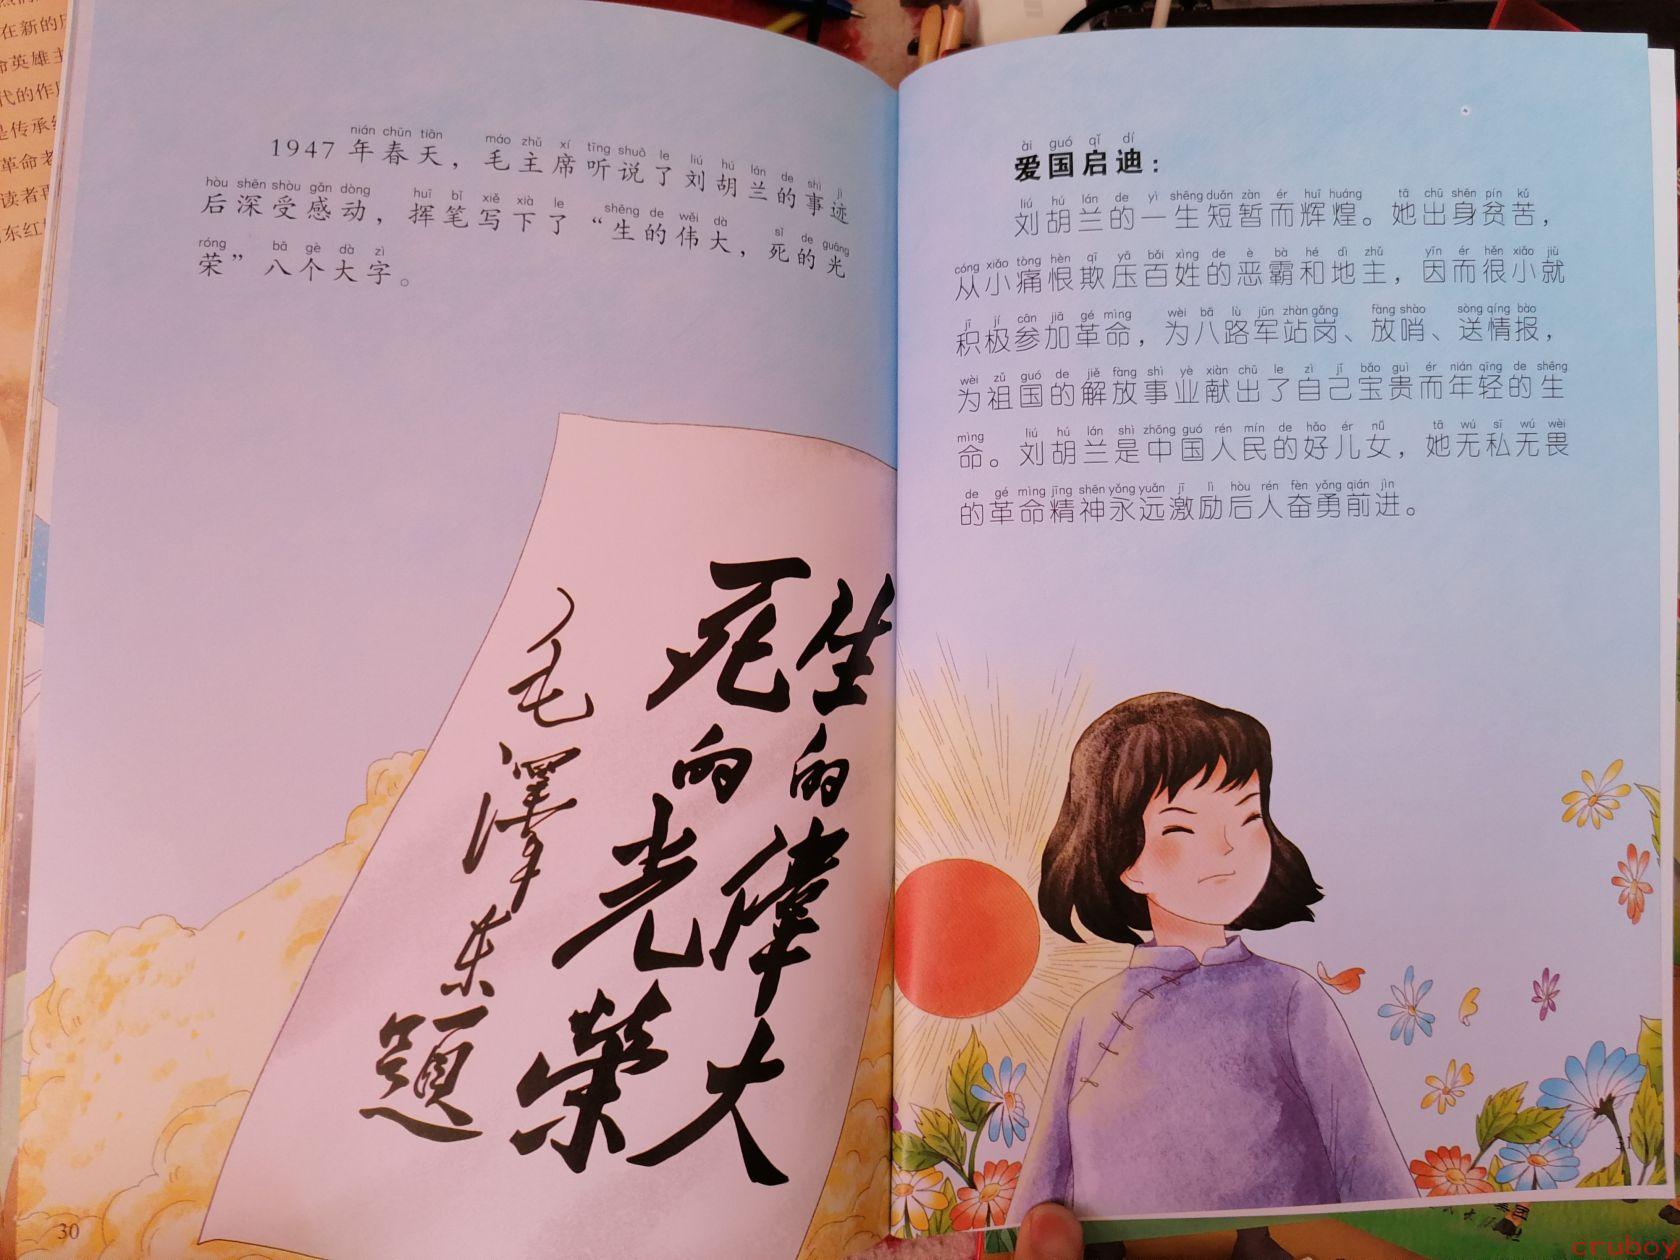 在新的
命英雄主
代的作
是传承
革命老
读者再
东红
nián chūn tiān máo zhǔ xí tīng shuō le liú hú lán de shì jì
1947 年春天，毛主席听说了刘胡兰的事迹
hòu shēn shòu gǎn dòng huī bǐ xiě xià le shēng de wěi dà sǐ de guāng
后深受感动，挥笔写下了“生的伟大，死的光
róng bā gè dà zì
荣”八个大字。
生的偉大
死的光榮
毛澤东題
30
ài guó qǐ dí
爱国启迪：
liú hú lán de yì shēng duǎn zàn ér huī huáng tā chū shēn pín kǔ
刘胡兰的一生短暂而辉煌。她出身贫苦，
cóng xiǎo tòng hèn qī yā bǎi xìng de è bà hé dì zhǔ yīn ér hěn xiǎo jiù
从小痛恨欺压百姓的恶霸和地主，因而很小就
jī jí cān jiā gé mìng wèi bā lù jūn zhàn gǎng fàng shào sòng qíng bào
积极参加革命，为八路军站岗、放哨、送情报，
wèi zǔ guó de jiě fàng shì yè xiàn chū le zì jǐ bǎo guì ér nián qīng de shēng
为祖国的解放事业献出了自己宝贵而年轻的生
mìng liú hú lán shì zhōng guó rén mín de hǎo ér nǚ tā wú sī wú wèi
命。刘胡兰是中国人民的好儿女，她无私无畏
de gé mìng jīng shén yǒng yuǎn jī lì hòu rén fèn yǒng qián jìn
的革命精神永远激励后人奋勇前进。
31
crubox